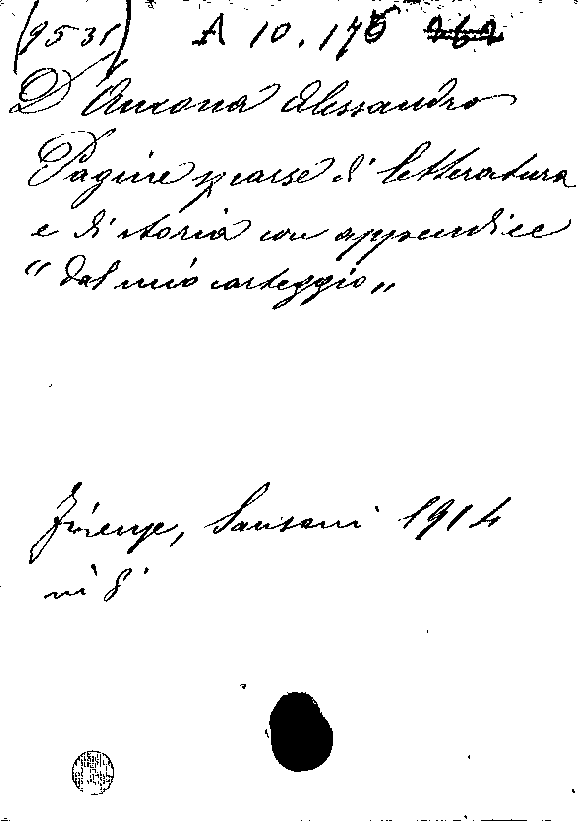 (9531) A 10. 175
D'Ancona Alessandro
Pagine sparse di letteratura
e di storia con appendice
"Dal mio carteggio"
Firenze, Sansoni 1914
in 8°